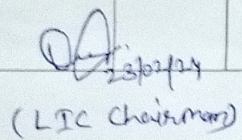 23/02/24
(LIC Chairman)